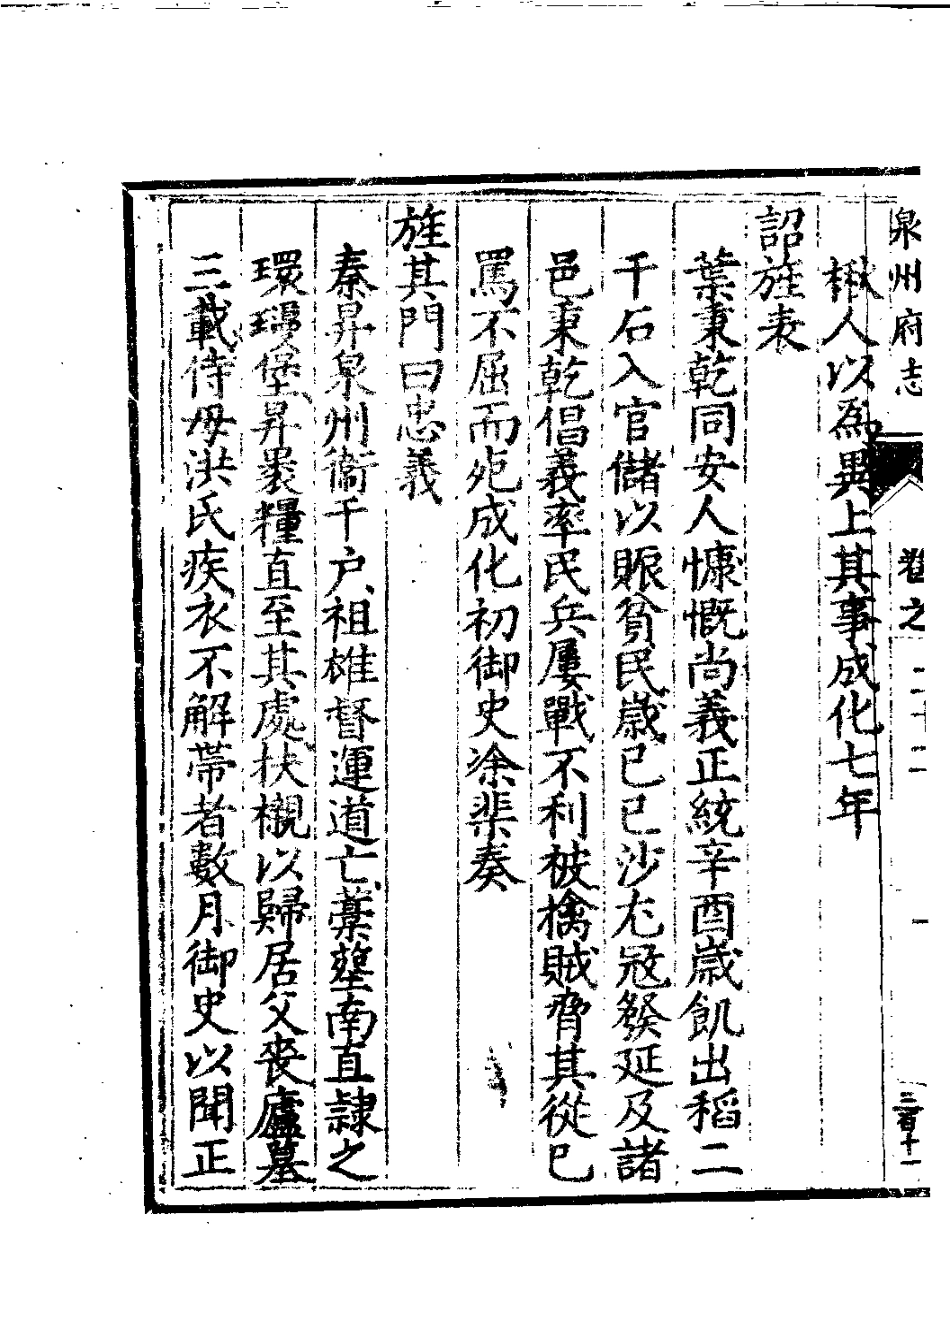 泉州府志 卷之二十二 三百十一
楸人以為異上其事成化七年
詔旌表
葉秉乾同安人慷慨尚義正統辛酉歲飢出稻二
千石入官儲以賑貧民歲已巳沙尤冦發延及諸
邑秉乾倡義率民兵屢戰不利被擒賊脅其從已
罵不屈而死成化初御史凃棐奏
旌其門曰忠義
秦昇泉州衞千户祖雄督運道亡藁塟南直隷之
環堡昇褁糧直至其處扶櫬以歸居父丧廬墓
三載侍母洪氏疾衣不解帶者數月御史以聞正